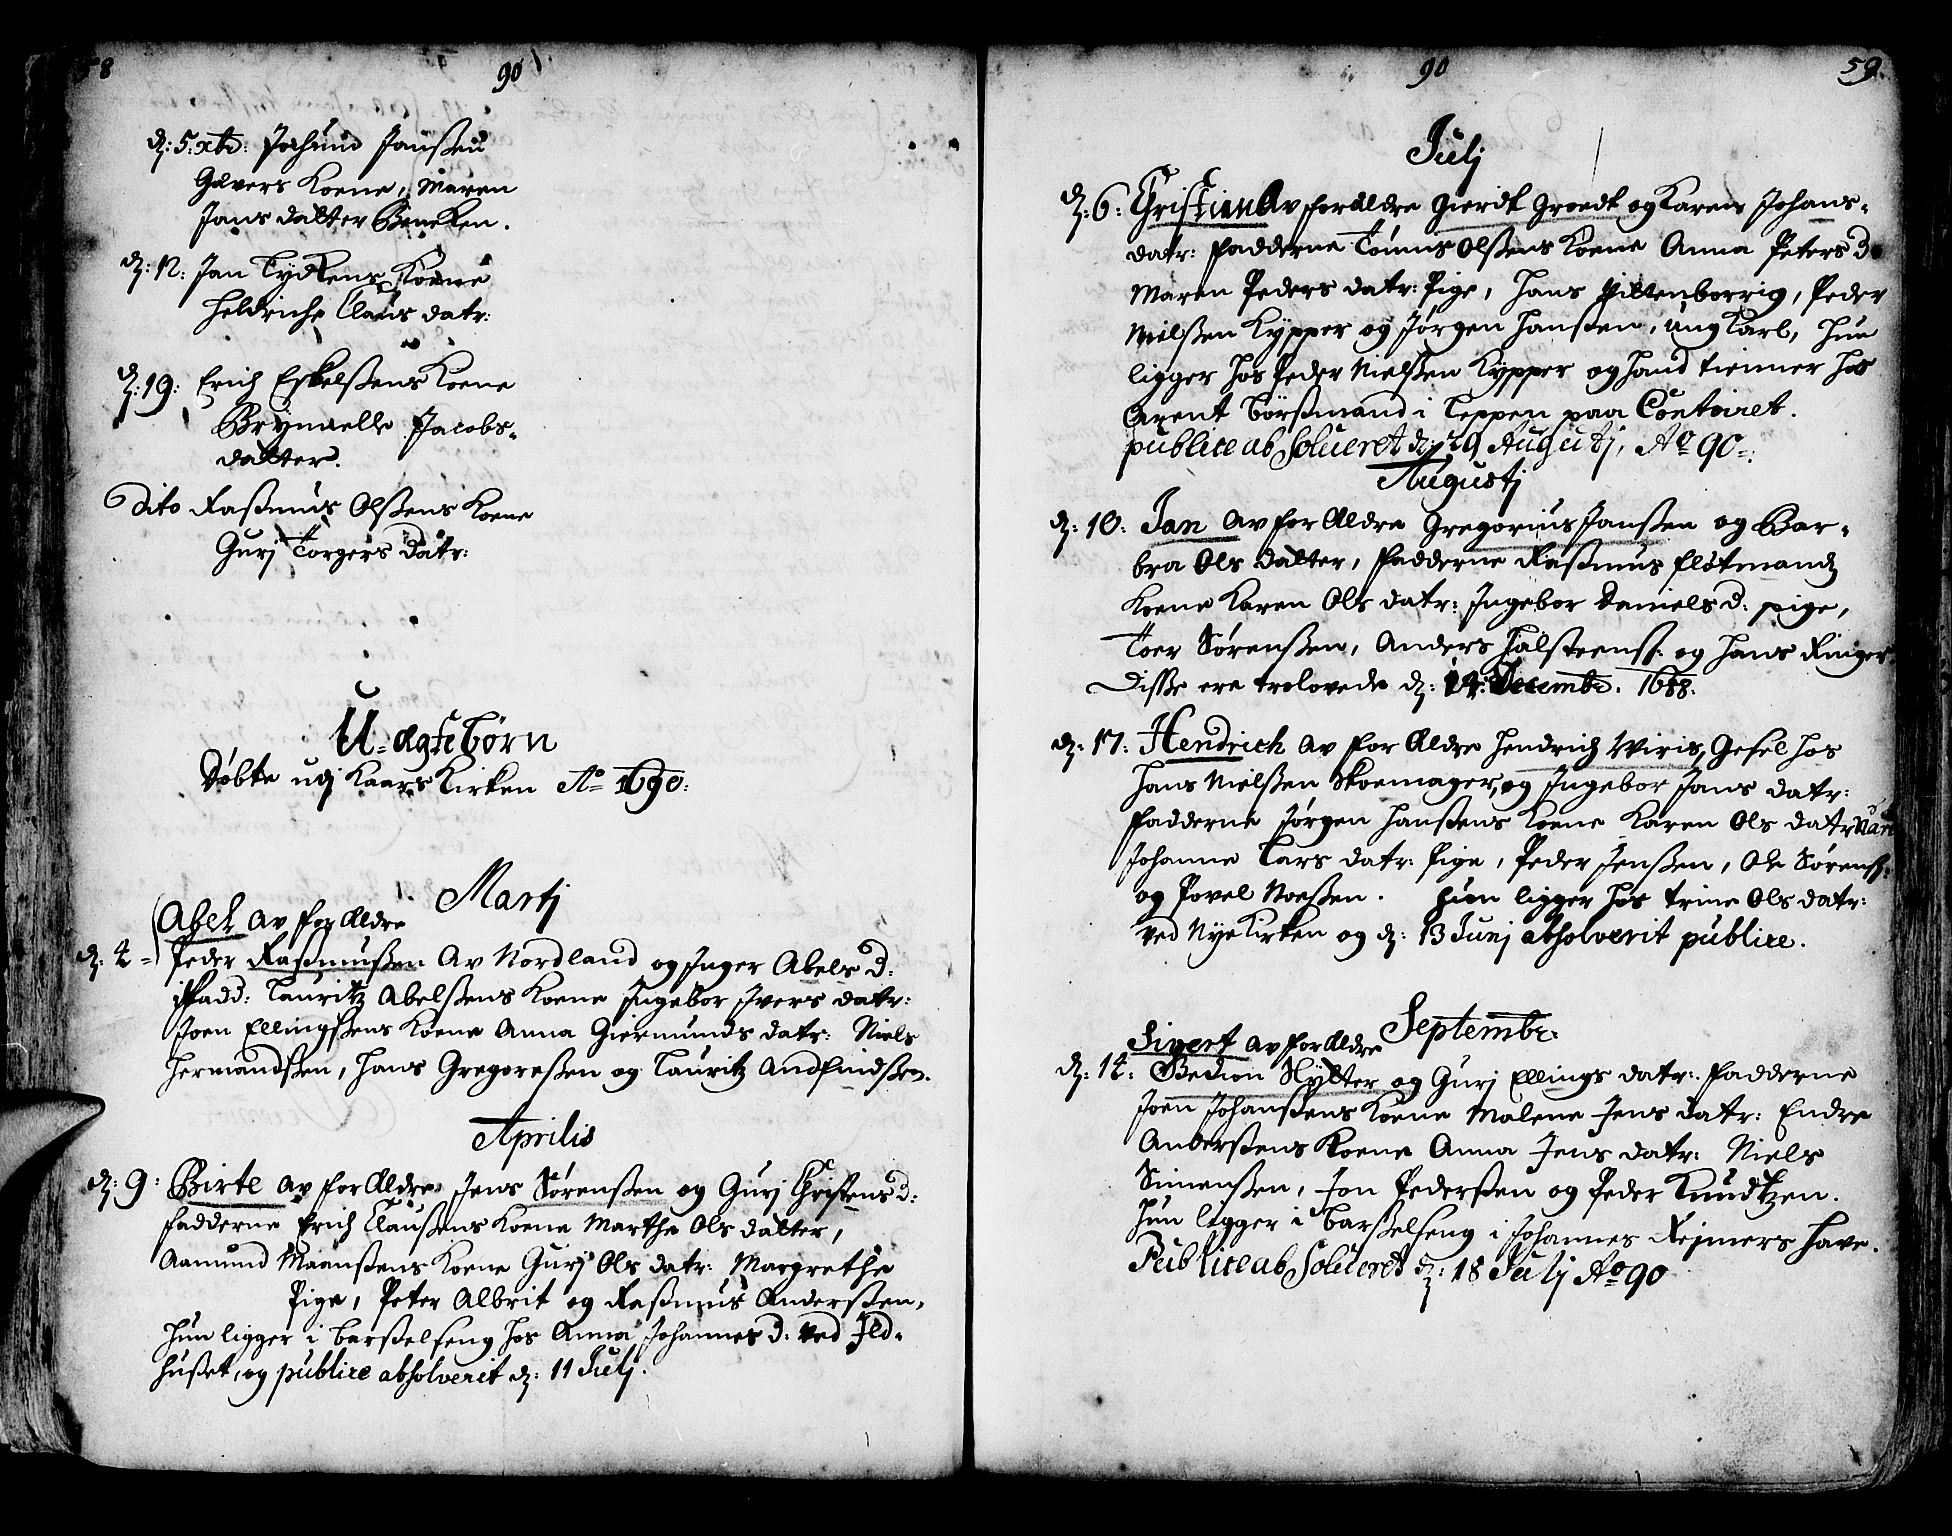 58
90
d: 5. xbr: Jochum Janßen
Gævers Koene, Maren
Jans datter Beneken.
d: 12: Jan Tydkens Koene
Heldriche Claus datr:
d: 19: Erich Eskelßens Koene
Brynnelle Jacobs-
datter.
Dito Raßmus Olßens Koene
Gurj Torgers datr:
U-ægte Børn
Døbte udj Kaars Kirken Ao 1690:
Martj
Abel av forældre
d: 4 = Peder Raßmußen av Nordland og Inger Abels d:
Fadd: Lauritz Abelßens Koene Ingebor Ivers datr:
Joen Ellingßens Koene Anna Giermunds datr: Niels
Hermandßen, Hans Gregoreßen og Lauritz Andfindßen.
Aprilis
d: 9: Birte av forældre Jens Sørenßen og Gurj Christens d:
Fadderne Erich Claußens Koene Marthe Ols datter,
Aamund Maanßens Koene Gurj Ols datr: Margrethe
Pige, Peter Albrit og Raßmus Anderßen,
Hun ligger i barßelseng hos Anna Johannes d: ved Ild-
hußet, og publice absolverit d: 11 Julj.
90
59.
Julj
d: 6: Christian Av forældre Gierdt Groedt og Karen Johans-
datr: Fadderne Tønnis Olßens Koene Anna Peters d
Maren Peders datr: Pige, Hans Piltenborrig, Peder
Nielßen Kypper og Jørgen Hanßen, ung Karl, Hun
ligger hos Peder Nielßen Kypper og hand tienner hos
Arent Børßmand i Leppen paa Contoiret.
publice ab Solueret d: 29 Augustj, Ao 90
Augustj
d: 10: Jan av forældre Gregorius Janßen og Bar-
bra Ols datter, Fadderne Raßmus Fløtmands
Koene Karen Ols datr: Ingebor Daniels d: pige,
Toer Sørenßen, Anders Halsteenß: og Hans Ringer
Disse ere trolovede d: 14: Decembr. 1688.
d: 17: Hendrich av forældre Hendrich Wiris, Gesel hos
Hans Nielßen Skoemager, og Ingebor Jans datr:
Fadderne Jørgen Hanßens Koene Karen Ols datr
Johanne Lars datr: Pige, Peder Jenßen, Ole Sørenß:
og Povel Noeßen. Hun ligger hos Trine Ols datr:
ved Nye Kirken og d: 13 Junj absolverit publice.
Septembr:
Sivert av forældre
d: 14: Gedion Hylter og Gurj Ellings datr: Fadderne
Joen Johanßens Koene Malene Jens datr: Endre
Anderßens Koene Anna Jens datr: Niels
Simenßen, Jon Pederßen og Peder Knudtzen.
Hun ligger i Barßelseng i Johannes Rejmers Have.
Publice ab Solueret d: 18 Julj Ao 90